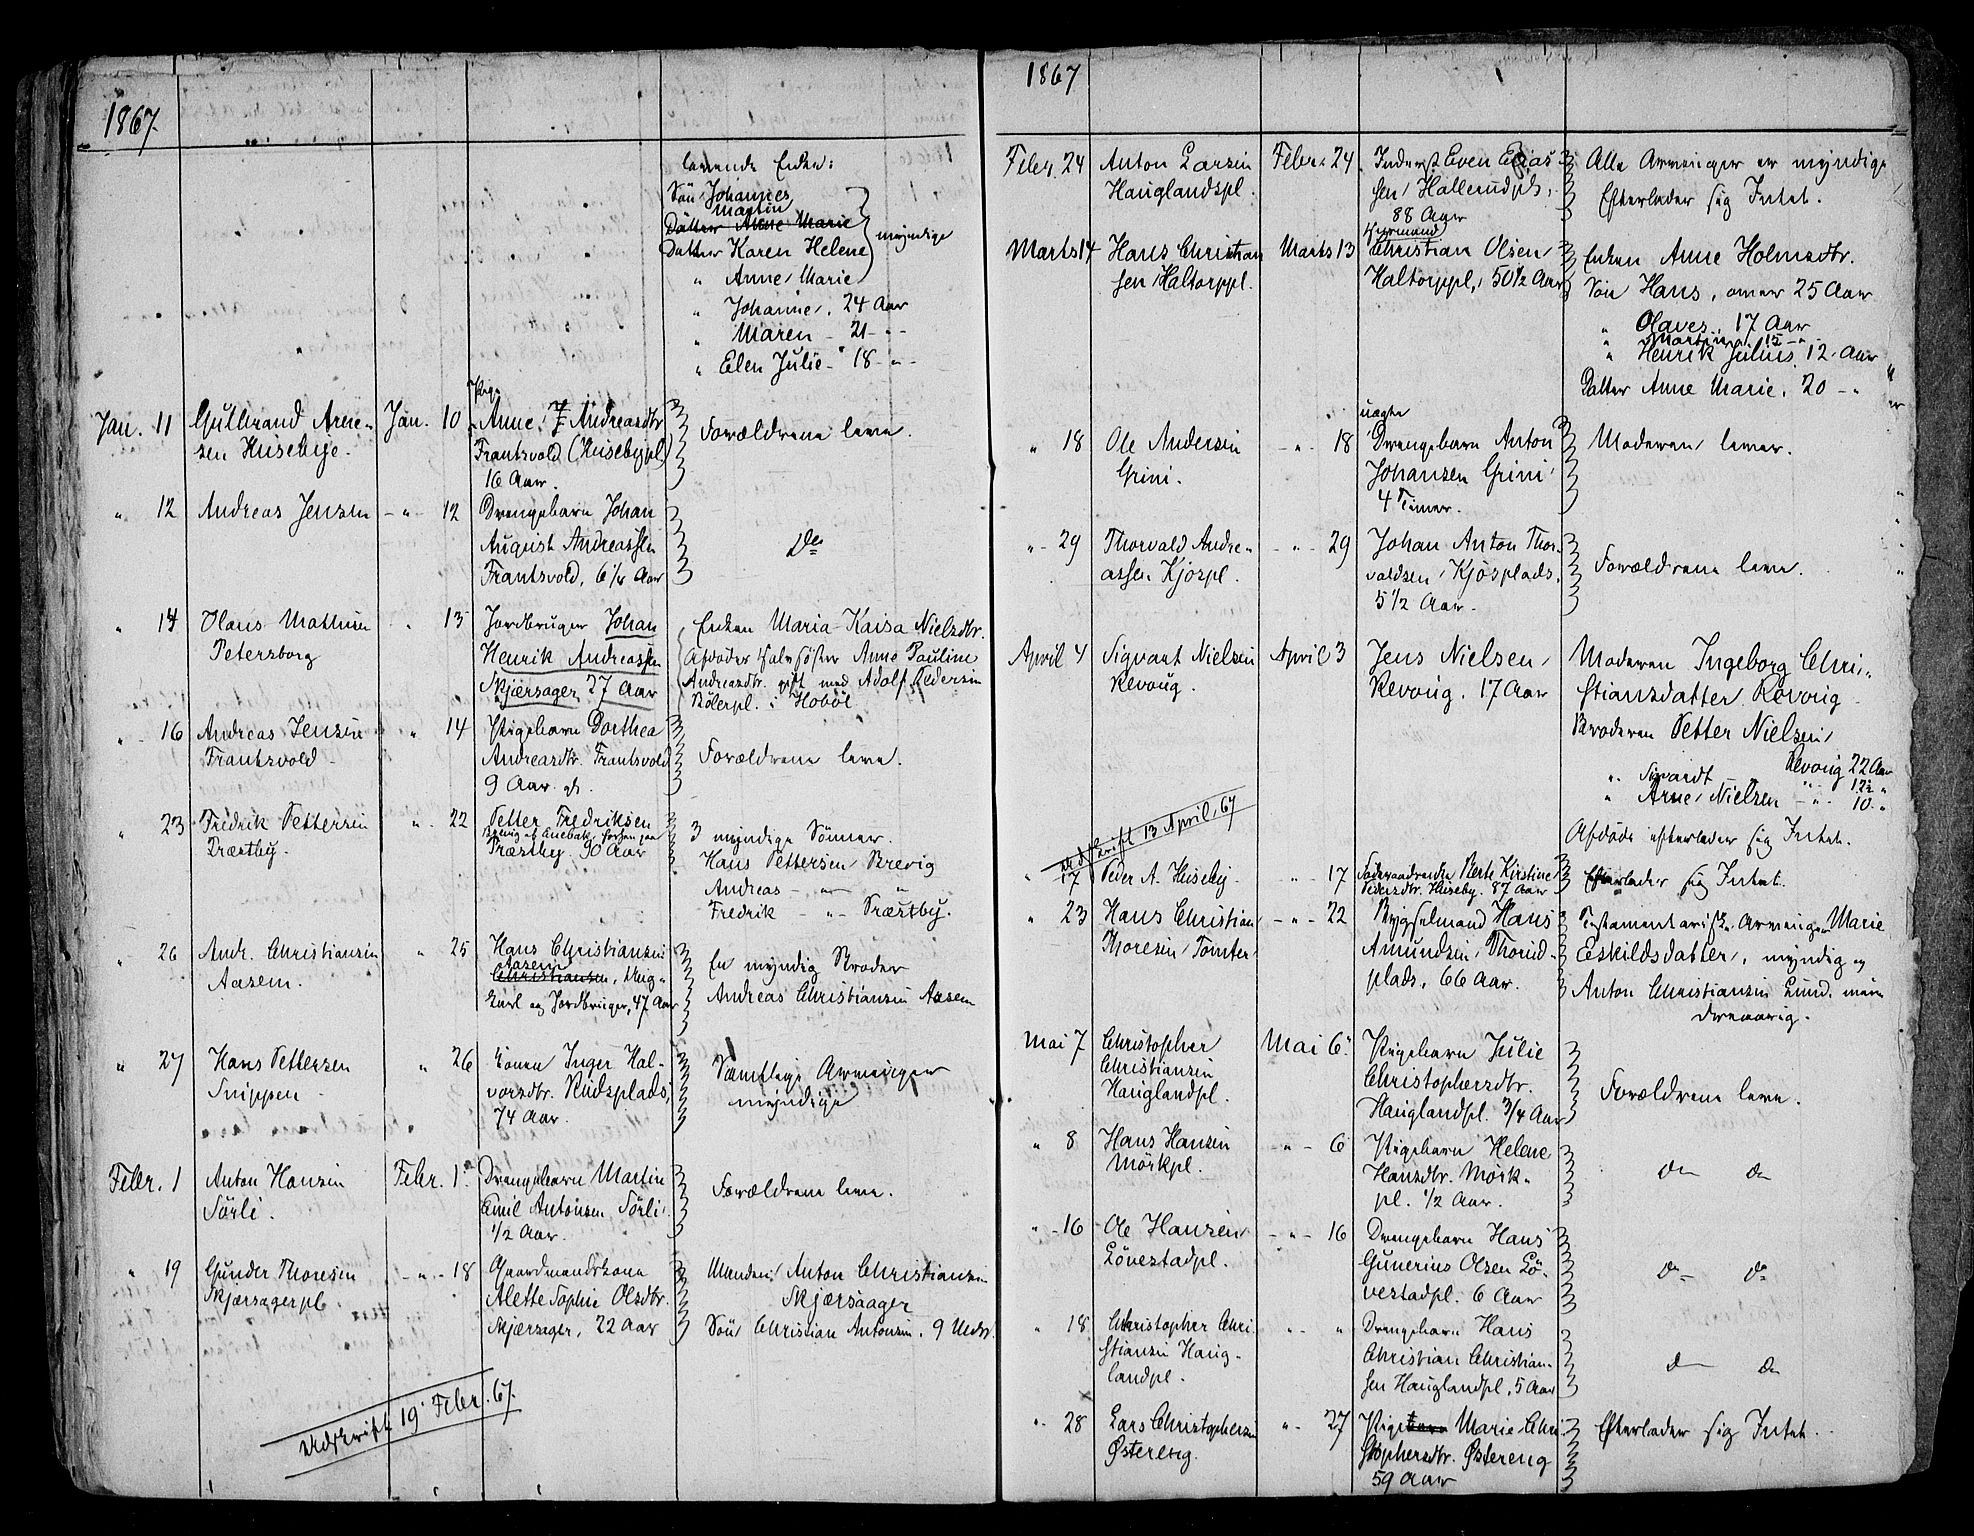 1867.
levende Enke:
Søn Johannes
Martin
Datter Anne Marie
Datter Karen Helene } myndige
" Anne Marie
" Johanne, 24 Aar
" Maren - 21 - "-
" Elen Julie - 18 - "-
Jan. 11 Gulbrand Arne- Jan. 10 Pige Anne F Andreasdtr Forældrene leve.
sen Huseby. Frantsvold (Husebypl)
16 Aar.
" 12 Andreas Jensen - " - 12 Drengebarn Johan
August Andreassen Do
Frantsvold, 6 1/4 Aar
" 14 Olaus Mathisen " 13 Jordbruger Johan Enken Maria Kaisa Nielsdtr.
Petersborg Henrik Andreassen Afdødes Halvsøster Anne Pauline
Skjærsager, 27 Aar Andreasdtr. gift med Adolf Pedersen
Bølerpl. i Hobøl
" 16 Andreas Jensen " 14 Pigebarn Dorthea
Frantsvold Andreasdtr. Frantsvold Forældrene leve.
9 Aar
" 23 Fredrik Pettersen " 22 Petter Fredriksen 3 myndige Sønner.
Præstby. Præstby. 90 Aar Hans Pettersen Brevig
Andreas - " - "
Fredrik - " - Præstby.
" 26 Andr. Christiansen " 25 Hans Christiansen En myndig Broder
Aasem. Aasem
Christiansen, Ung-
karl og Jordbruger, 47 Aar Andreas Christiansen Aasem
" 27 Hans Pettersen " 26 Konen Inger Hal- Samtlige Arvinger
Snippen vorsdtr. Rudsplads, myndige
74 Aar.
Febr. 1 Anton Hansen Febr. 1. Drengebarn Martin Forældrene leve.
Sørli. Emil Antonsen Sørli.
1/2 Aar.
" 19 Gunder Thoresen - " - 18 Gaardmandskone Manden Anton Christiansen
Skjærsagerpl Alette Sophie Olsdtr. Skjærsaager
Skjærsager, 22 Aar Søn Christian Antonsen, 9 Uger.
Udskrift 19 Febr. 67.
1867
Febr. 24 Anton Larsen Febr. 24 Inderst Even Elias- Alle Arvinger er myndige
Hauglandspl. sen Hallerudpl., Efterlader sig Intet.
88 Aar
Marts 14 Hans Christian Marts 13 Christian Olsen Enken Anne Holmsdtr.
sen Haltorppl. Haltorppl., 50 1/2 Aar Søn Hans, omtr 25 Aar
" Olaves, 17 Aar
" Martin, 15 - "
" Henrik Julius, 12 Aar
Datter Anne Marie, 20 - "
" 18 Ole Andersen - " - 18 uægte Drengebarn Anton Moderen lever.
Grini. Johansen Grini
4 Timer.
" - 29 Thorvald Andre- - " - 29 Johan Anton Thor- Forældrene leve.
assen Kjøspl. valdsen Kjøsplads.
5 1/2 Aar.
April 4 Sigvart Nielsen April 3 Jens Nielsen Moderen Ingeborg Chri-
Revoug. Revoug. 17 Aar stiansdatter Revoug
Broderen Petter Nielsen
Revoug 22 Aar
" Sigvardt - " - 17 1/2 "
" Arne Nielsen - " - 10 - "
Afdøde efterlader sig Intet.
Udskrift 13 April 67
" 17 Peder A. Huseby - " - 17 Føderaadsenke Berte Kirstine Efterlader sig Intet.
Pedersdtr. Huseby. 87 Aar
" 23 Hans Christian - " - 22 Bygselmand Hans Testamentarisk Arving Marie
Thoresen Tomter Amundsen Thorud- Eskildsdatter, myndig og
plads, 66 Aar. Anton Christiansen Lund,
Mai 7 Christopher Mai 6. Pigebarn Julie
Christiansen Christophersdtr. Forældrene leve.
Hauglandpl. Hauglandpl. 3/4 Aar
" 8 Hans Hansen " - 6 Pigebarn Helene
Mørkpl. Hansdtr. Mørk- Do Do
pl. 1/2 Aar.
" - 16 Ole Hansen - " - 16 Drengebarn Hans
Løvestadpl. Gunerius Olsen Lø- Do Do
vestadpl. 6 Aar
" 18 Christopher Chri- " - " Drengebarn Hans
stiansen Haug- Christian Christian- Do Do
landpl. sen Hauglandpl, 5 Aar
" - 28 Lars Christophersen " - 27 Pigebarn Marie Chri- Efterlader sig Intet.
Østereng. stophersdtr. Østereng
59 Aar